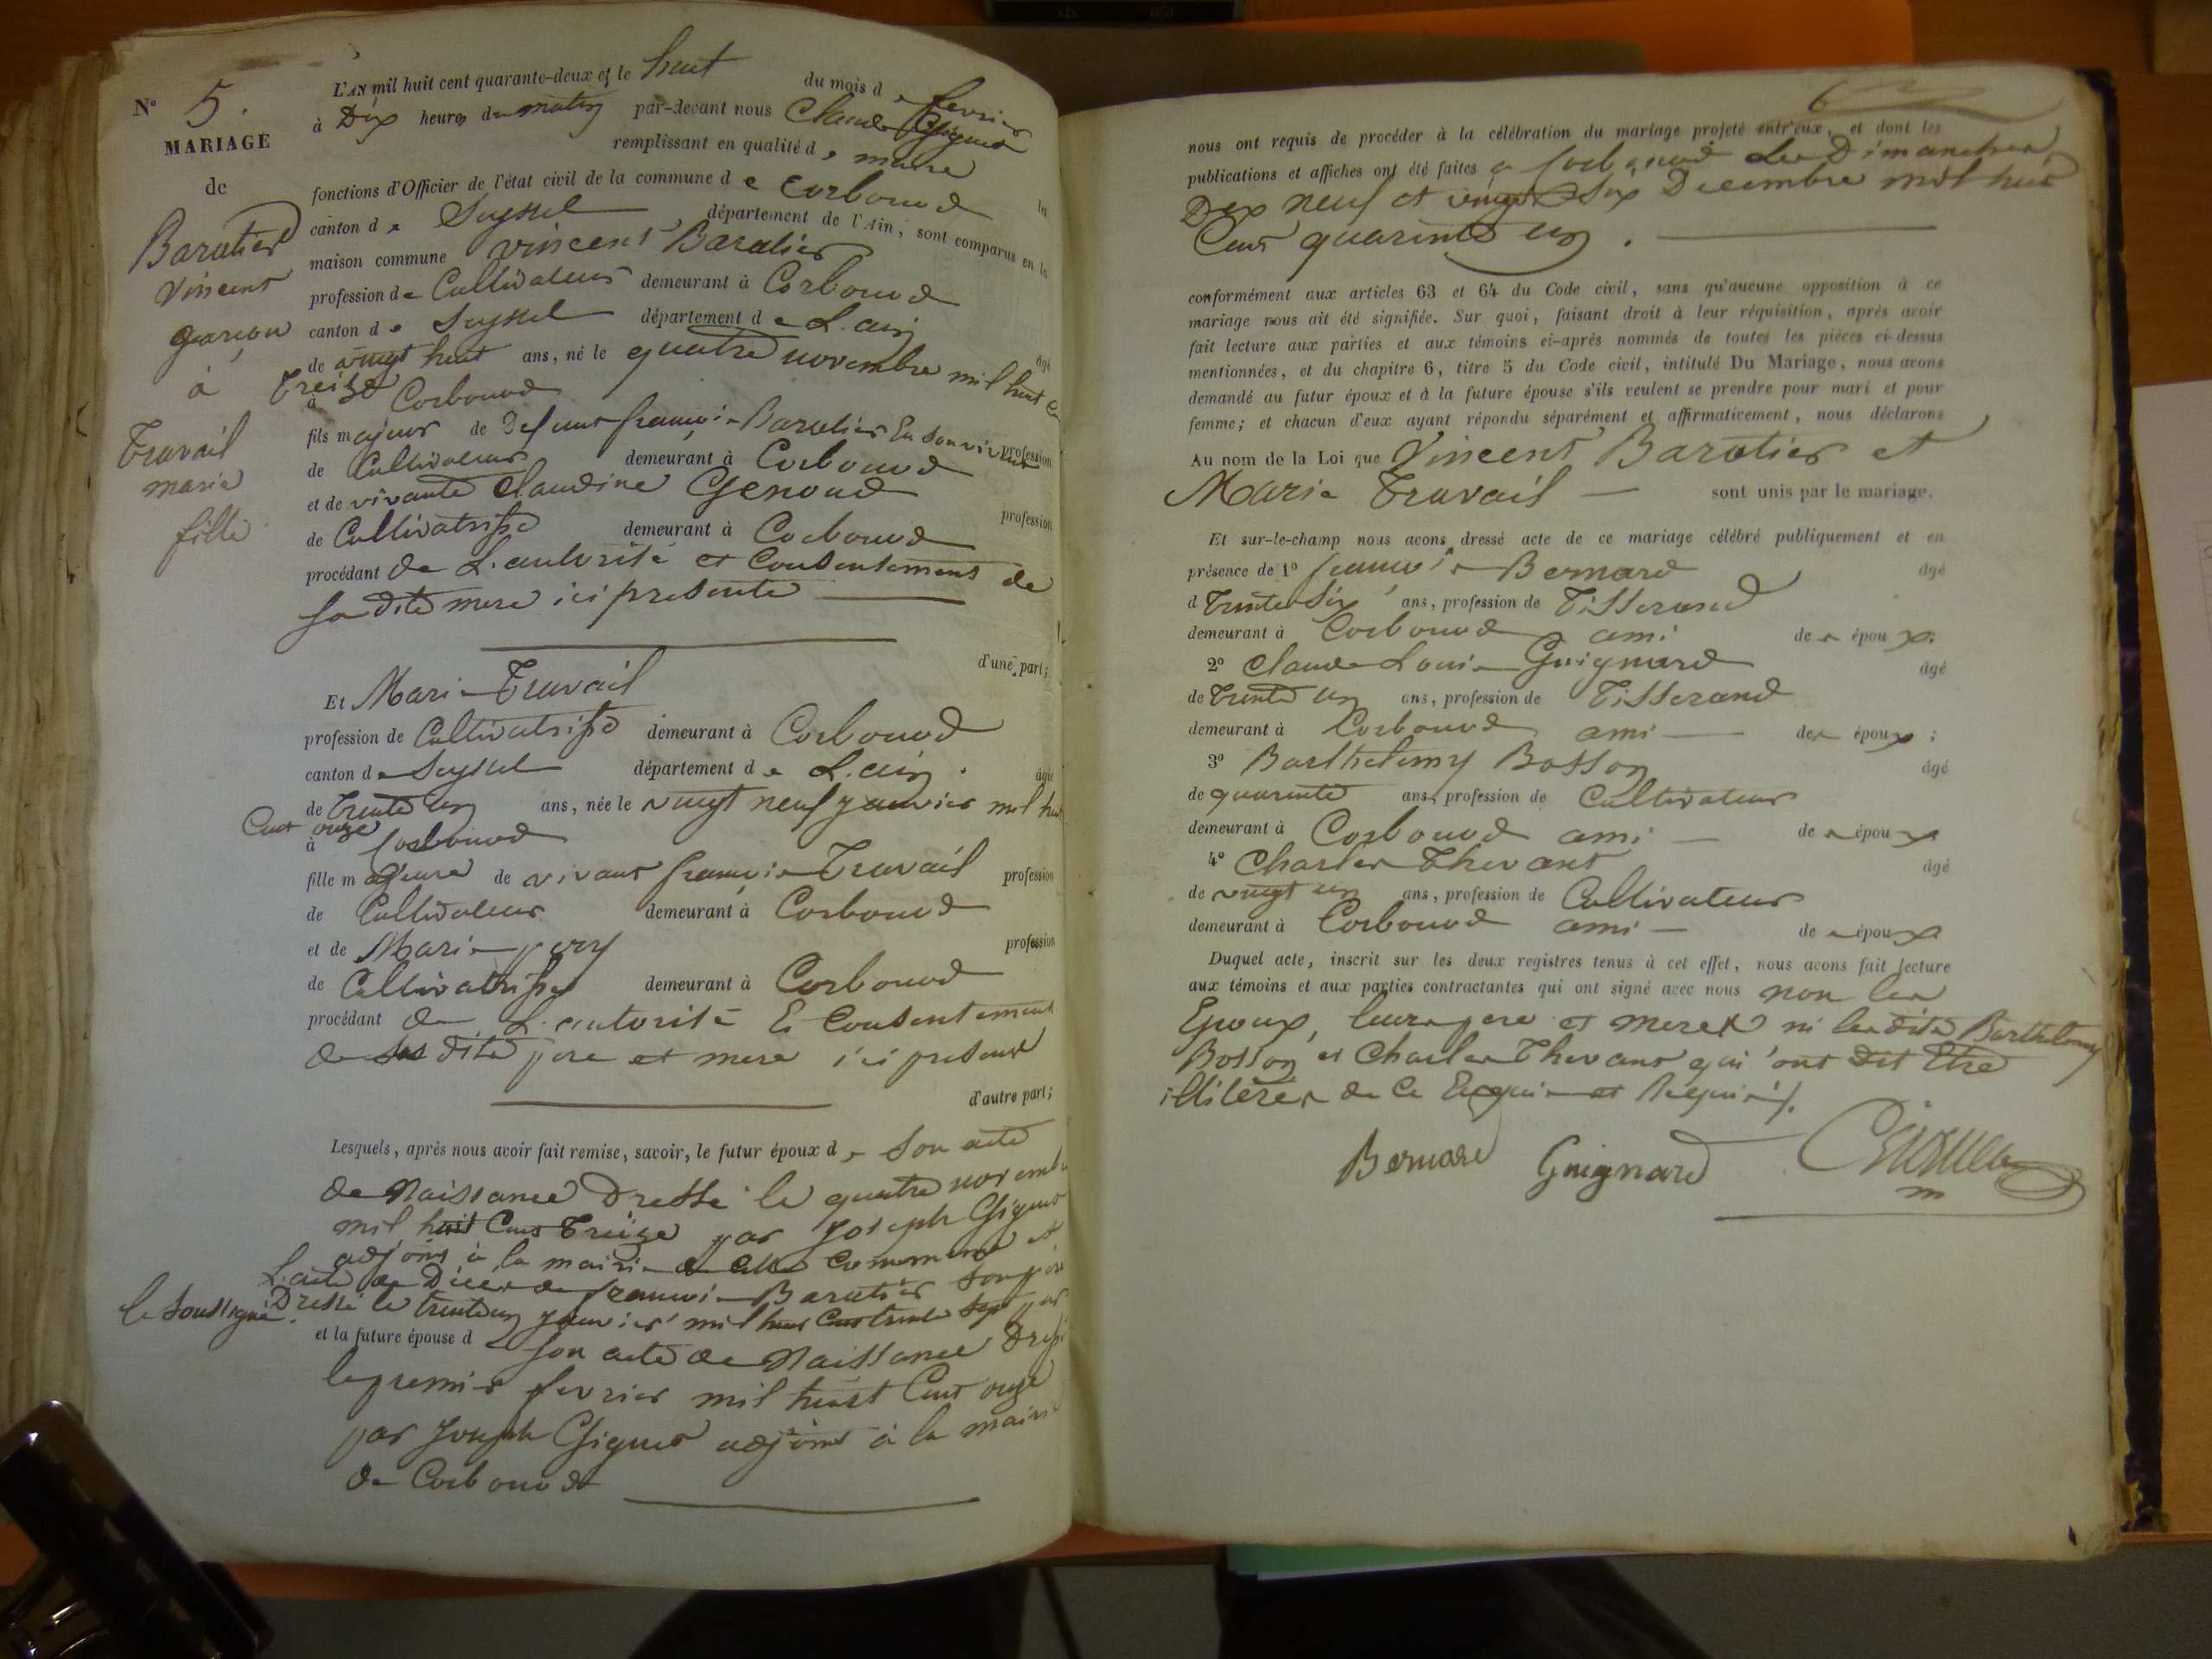 N° 5.
MARIAGE
de
Baratier
Vincent
garçon
à
Travail
marie
fille
L'AN mil huit cent quarante-deux et le huit du mois de fevrier
à Dix heures du matin par-devant nous Claude Gignet
remplissant en qualité de maire les
fonctions d'Officier de l'état civil de la commune de Corbonod
canton de Seyssel département de l'Ain, sont comparus en la
maison commune Vincent Baratier
profession de Cultivateur demeurant à Corbonod
canton de Seyssel département de L'ain âgé
de vingt huit ans, né le quatre novembre mil huit Cent
treize
à Corbonod
fils majeur de Defunt françois Baratier En son vivant profession
de Cultivateur demeurant à Corbonod
et de vivante Claudine Genoud profession
de Cultivatrisse demeurant à Corbonod
procédant de L'autorité et Consentement de
sa dite mere ici presente
d'une part;
Et Marie Travail
profession de Cultivatrisse demeurant à Corbonod
canton de Seyssel département de L'ain. âgée
de trente un ans, née le vingt neuf janvier mil huit
Cent onze
à Corbonod
fille majeure de vivant françois Travail profession
de Cultivateur demeurant à Corbonod
et de Marie pery profession
de Cultivatrisse demeurant à Corbonod
procédant de L'autorité Et Consentement
de ses dits pere et mere ici present
d'autre part;
Lesquels, après nous avoir fait remise, savoir, le futur époux de son acte
de Naissance Dressé le quatre novembre
mil huit Cent Treize par Joseph Gignet
adjoint à la mairie de cette Commune et
L'acte de Décès de françois Baratier son père
Dressé le trente un janvier mil huit Cent trente sept par
le soussigné.
et la future épouse de son acte de Naissance Dressé
le premier fevrier mil huit Cent onze
par Joseph Gignet adjoint à la mairie
de Corbonod
6
nous ont requis de procéder à la célébration du mariage projeté entr'eux, et dont les
publications et affiches ont été faites a Corbonod Les Dimanches
Dix neuf et vingt Six Decembre mil huit
Cent quarante un.
conformément aux articles 63 et 64 du Code civil, sans qu'aucune opposition à ce
mariage nous ait été signifiée. Sur quoi, faisant droit à leur réquisition, après avoir
fait lecture aux parties et aux témoins ci-après nommés de toutes les pièces ci-dessus
mentionnées, et du chapitre 6, titre 5 du Code civil, intitulé Du Mariage, nous avons
demandé au futur époux et à la future épouse s'ils veulent se prendre pour mari et pour
femme; et chacun d'eux ayant répondu séparément et affirmativement, nous déclarons
Au nom de la Loi que Vincent Baratier et
Marie Travail sont unis par le mariage.
Et sur-le-champ nous avons dressé acte de ce mariage célébré publiquement et en
présence de 1° françois Bernard âgé
d Trente Six ans, profession de Tisserand
demeurant à Corbonod ami des époux;
2° Claude Louis Guignard âgé
de trente un ans, profession de Tisserand
demeurant à Corbonod ami des époux;
3° Barthelemy Bosson âgé
de quarante ans, profession de Cultivateur
demeurant à Corbonod ami des époux
4° Charles Thevant âgé
de vingt un ans, profession de Cultivateur
demeurant à Corbonod ami des époux
Duquel acte, inscrit sur les deux registres tenus à cet effet, nous avons fait lecture
aux témoins et aux parties contractantes qui ont signé avec nous non les
Epoux, leurs pere et meres ni les dits Barthelemy
Bosson et Charles Thevant qui ont dit Etre
illitérés de ce Enquis et Requis.
Bernard Guignard